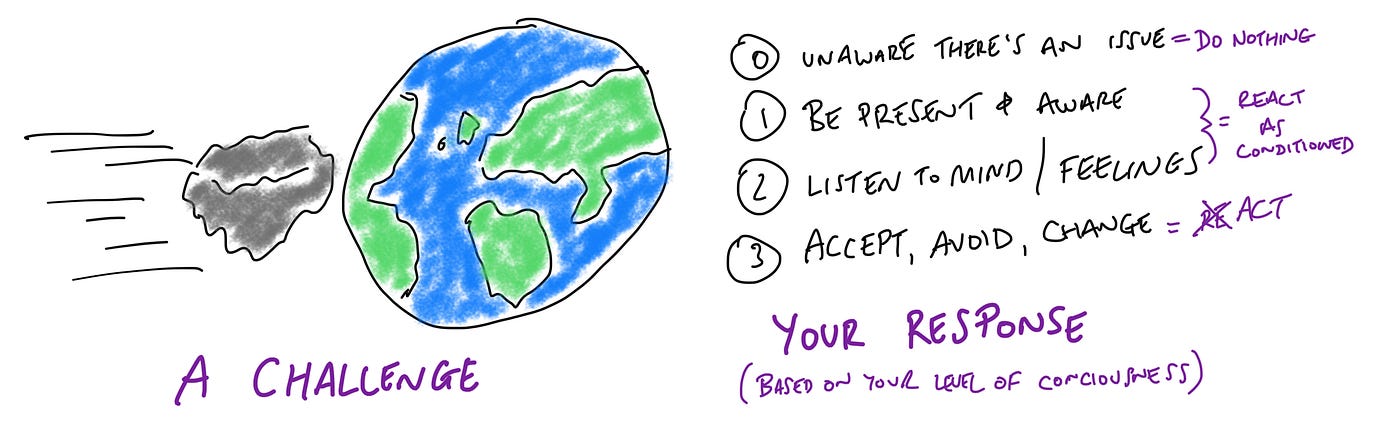 0 UNAWARE THERE'S AN ISSUE = DO NOTHING
1 BE PRESENT & AWARE
2 LISTEN TO MIND / FEELINGS
} = REACT
AS
CONDITIONED
3 ACCEPT, AVOID, CHANGE = RE ACT
A CHALLENGE
YOUR RESPONSE
(BASED ON YOUR LEVEL OF CONCIOUSNESS)